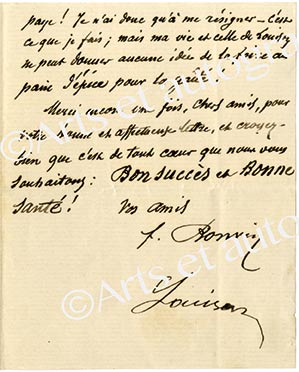 paye! Je n'ai donc qu'à me résigner – C'est
ce que je fais; mais ma vie et celle de Louison
ne peut donner aucune idée de la foire au
pain d'épice pour la gaité!
Merci encore une fois, chers amis, pour
votre bonne et affectueuse lettre, et croyez
bien que c'est de tout cœur que nous vous
souhaitons: Bon succès et Bonne
santé! Vos amis
f. Bonvin
Louison
©Arts et autographes